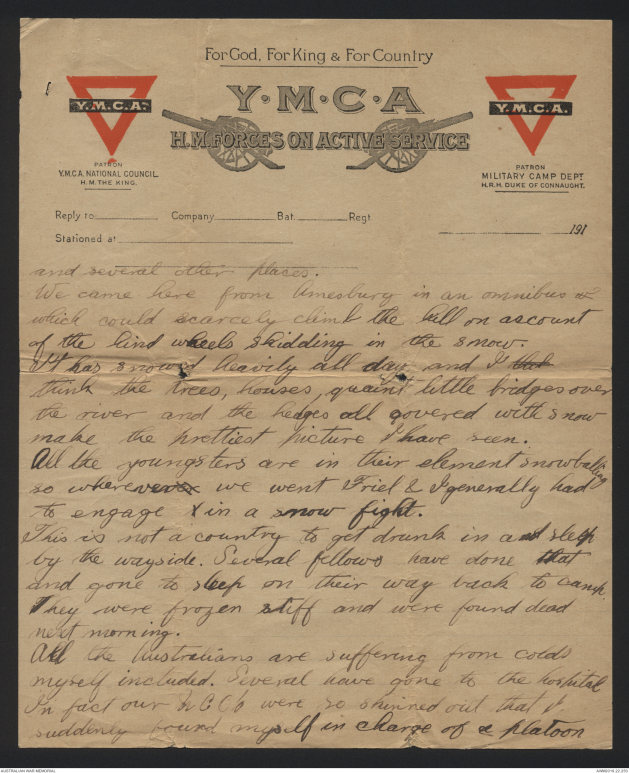 For God, For King & For Country
Y·M·C·A
H.M. FORCES ON ACTIVE SERVICE
Y.M.C.A.
PATRON
Y.M.C.A. NATIONAL COUNCIL.
H.M. THE KING.
Y.M.C.A.
PATRON
MILITARY CAMP DEPT
H.R.H. DUKE OF CONNAUGHT.
Reply to Company Bat. Regt
Stationed at
191
and several other places.
We came here from Amesbury in an omnibus
which could scarcely climb the hill on account
of the hind wheels skidding in the snow.
It has snowed heavily all day and I that
think the trees, houses, quaint little bridges over
the river and the hedges all covered with snow
make the prettiest picture I have seen.
All the youngsters are in their element snowballing
so wherever we went Friel & I generally had
to engage in a snow fight.
This is not a country to get drunk in and sleep
by the wayside. Several fellows have done that
and gone to sleep on their way back to camp.
They were frozen stiff and were found dead
next morning.
All the Australians are suffering from colds
myself included. Several have gone to the hospital
In fact our N.C.Os were so thinned out that I
suddenly found myself in charge of a platoon
AUSTRALIAN WAR MEMORIAL